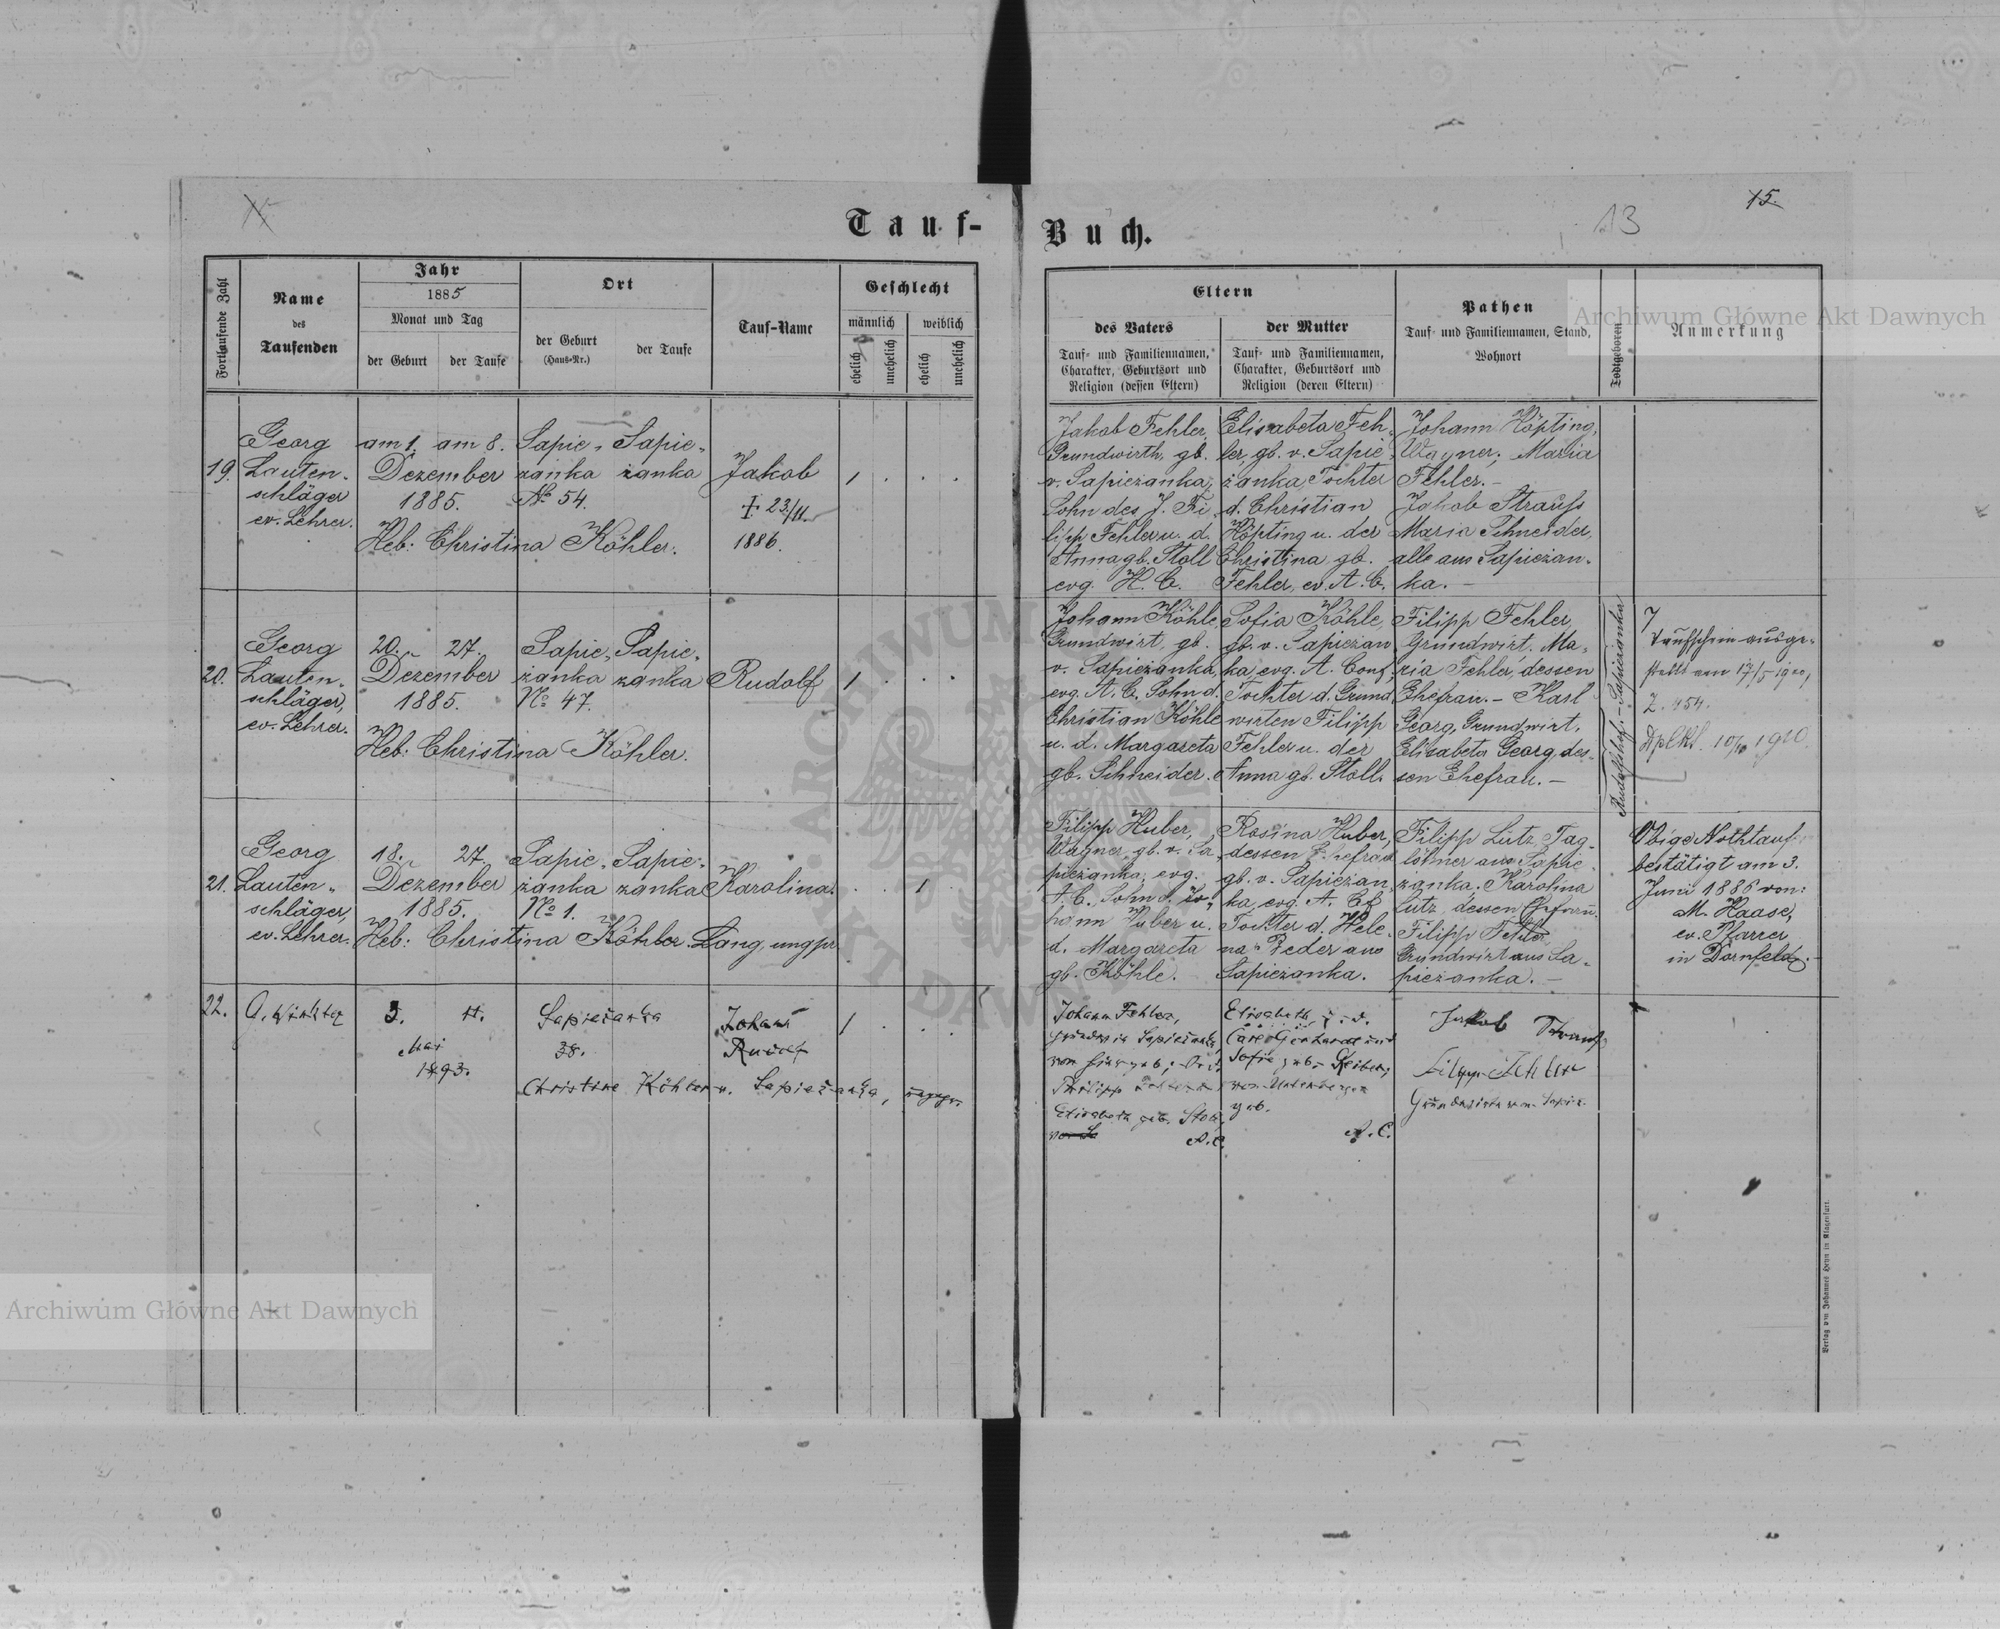 15.
13
Tauf-
Buch.
Fortlaufende Zahl
Name
des
Taufenden
Jahr
1885
Monat und Tag
der Geburt
der Taufe
Ort
der Geburt
(Haus-Nr.)
der Taufe
Tauf-Name
Geschlecht
männlich
weiblich
ehelich
unehelich
ehelich
unehelich
Eltern
des Vaters
Tauf- und Familiennamen,
Charakter, Geburtsort und
Religion (dessen Eltern)
der Mutter
Tauf- und Familiennamen,
Charakter, Geburtsort und
Religion (deren Eltern)
Pathen
Tauf- und Familiennamen, Stand,
Wohnort
Todtgeboren
Anmerkung
Archiwum Główne Akt Dawnych
19.
Georg
Lauten-
schläger
ev. Lehrer.
am 1. am 8.
Dezember
1885.
Sapie-
zanka
No 54.
Sapie-
zanka
Heb: Christina Köhler.
Jakob
† 23/11.
1886.
Jakob Fehler,
Grundwirth, gb.
v. Sapiezanka,
Sohn des J. Fi
lipp Fehler u. d.
Anna gb. Stoll
evg. H. C.
Elisabeta Feh-
ler, gb. v. Sapie
żanka, Tochter
d. Christian
Höpting u. der
Christina gb.
Fehler, ev. A. C.
Johann Höpting,
Wagner; Maria
Fehler.-
Jakob Strauss
Maria Schneider,
alle aus Sapiezan-
ka. -
20.
Georg
Lauten-
schläger,
ev. Lehrer.
20. 27.
Dezember
1885.
Sapie-
żanka
No 47.
Sapie-
zanka
Heb: Christina Köhler.
Rudolf
Johann Köhle,
Grundwirt, gb.
v. Sapiezanka,
evg. A. C. Sohn d.
Christian Köhle
u. d. Margareta
gb. Schneider.
Sofia Köhle,
gb. v. Sapiezan
ka, evg. A. Conf,
Tochter d. Grund
wirten Filipp
Fehler u. der
Anna gb. Stoll.
Filipp Fehler,
Grundwirt. Ma-
ria Fehler dessen
Ehefrau. - Karl
Georg, Grundwirt.
Elisabeta Georg, des-
sen Ehefrau. -
Taufschein ausge-
stellt am 17/5 1900,
Z. 454.
10/10 1910.
21.
Georg
Lauten-
schläger,
ev. Lehrer.
18. 27.
Dezember
1885.
Sapie-
żanka
No 1.
Sapie-
zanka
Heb: Christina Köhler. Lang, ungpr.
Karolina.
Filipp Huber,
Wagner, gb. v. Sa
piezanka, evg.
A. C. Sohn d. Jo-
hann Huber u.
d. Margareta
gb. Köhle.
Rosina Huber,
dessen Ehefrau
gb. v. Sapiezan
ka, evg. A. Cf
Tochter d. Hele-
na Peder aus
Sapiezanka.
Filipp Lutz, Tag-
löhner aus Sapie
żanka; Karolina
Lutz, dessen Ehefrau.
Filipp Fehler
Grundwirt aus Sa-
piezanka. -
Obige Nothtauf
bestätigt am 3.
Juni 1886 von:
M. Haase,
ev. Pfarrer
in Dornfeld.
22.
3. 11.
Mai
1893.
Sapiežanka
38.
Christine Köhler v. Sapiežanka,
Johann
Rudolf
Johann Fehler,
Philipp
Elisabeth geb. Stoll,
A.C.
Elisabeth
Carl Gerhardt und
Sofie geb. Reiber,
geb.
A. C.
Jakob Strauss
Filipp Fehler
Verlag von Johannes Heyn in Klagenfurt.
Archiwum Główne Akt Dawnych
ARCHIWUM GŁÓWNE AKT DAWNYCH